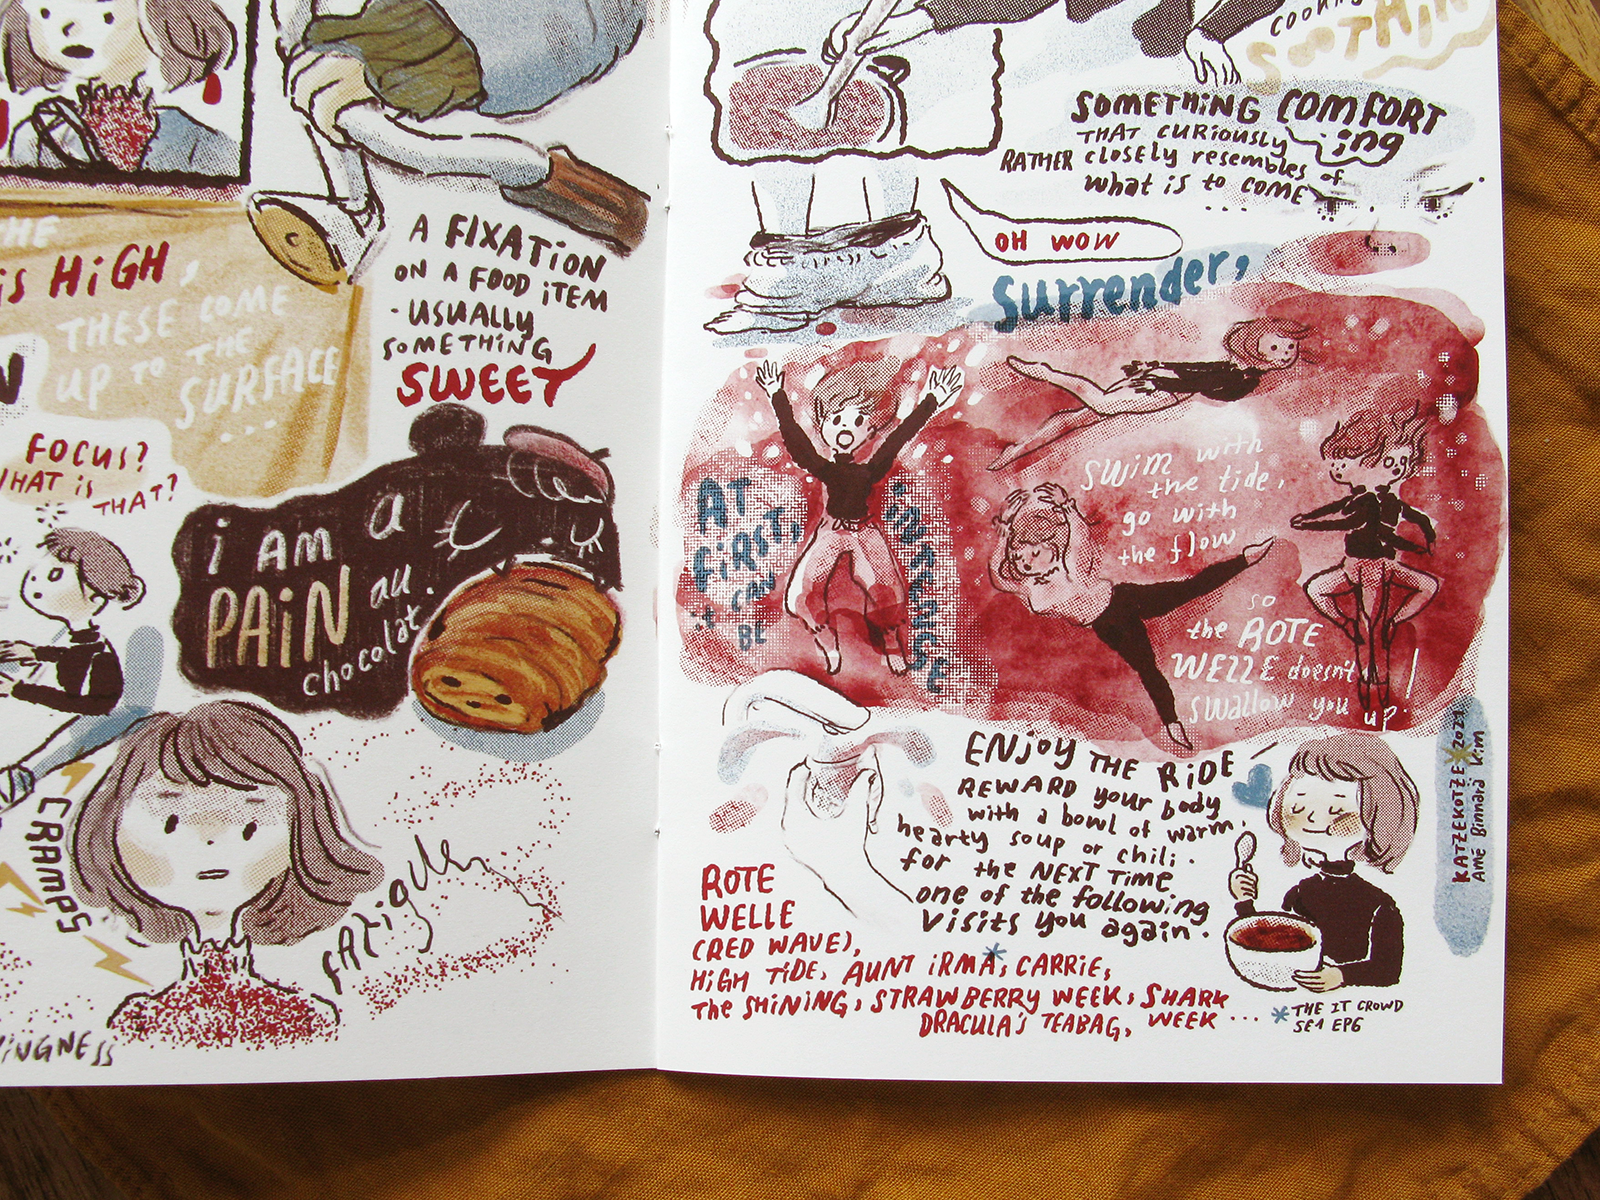 THE
is HiGH,
THESE COME
UP TO THE
SURFACE
...
FOCUS?
WHAT iS
THAT?
A FIXATiON
ON A FOOD iTEM
- USUALLY
SOMETHiNG
SWEET
i AM a
PAiN au
chocolat.
CRAMPS
FATigue
COOKING
SOOTHiN
SOMETHiNG COMFORT
ing
THAT CURiOUSLY
RATHER closely resembles of
what is to come
...
OH WOW
Surrender,
AT
FiRST,
it CAN
BE
iNTENSE
SWiM with
the tide,
go with
the flow
so
the ROTE
WELLE doesn't
swallow you up!
ENJOY THE RiDE
REWARD your body
with a bowl of warm,
hearty soup or chili.
for the NEXT TiME
one of the following
visits you again.
ROTE
WELLE
(RED WAVE),
HiGH TiDE, AUNT iRMA*, CARRiE,
The SHiNiNG, STRAWBERRY WEEK, SHARK
DRACULA'S TEABAG, WEEK ...
* THE IT CROWD
SE1 EP6
KATZEKOTZE * 2021
Amē Binnard Kim